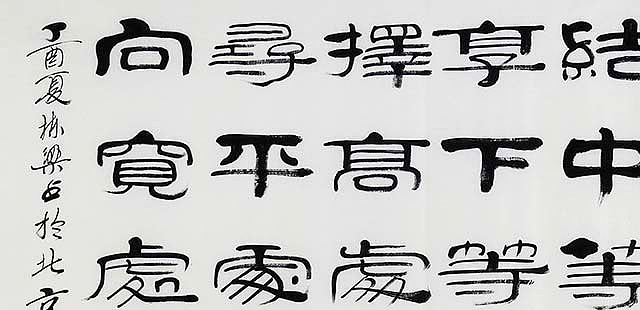 結中等
享下等
擇高處
尋平處
向寬處
丁酉夏栋梁书於北京